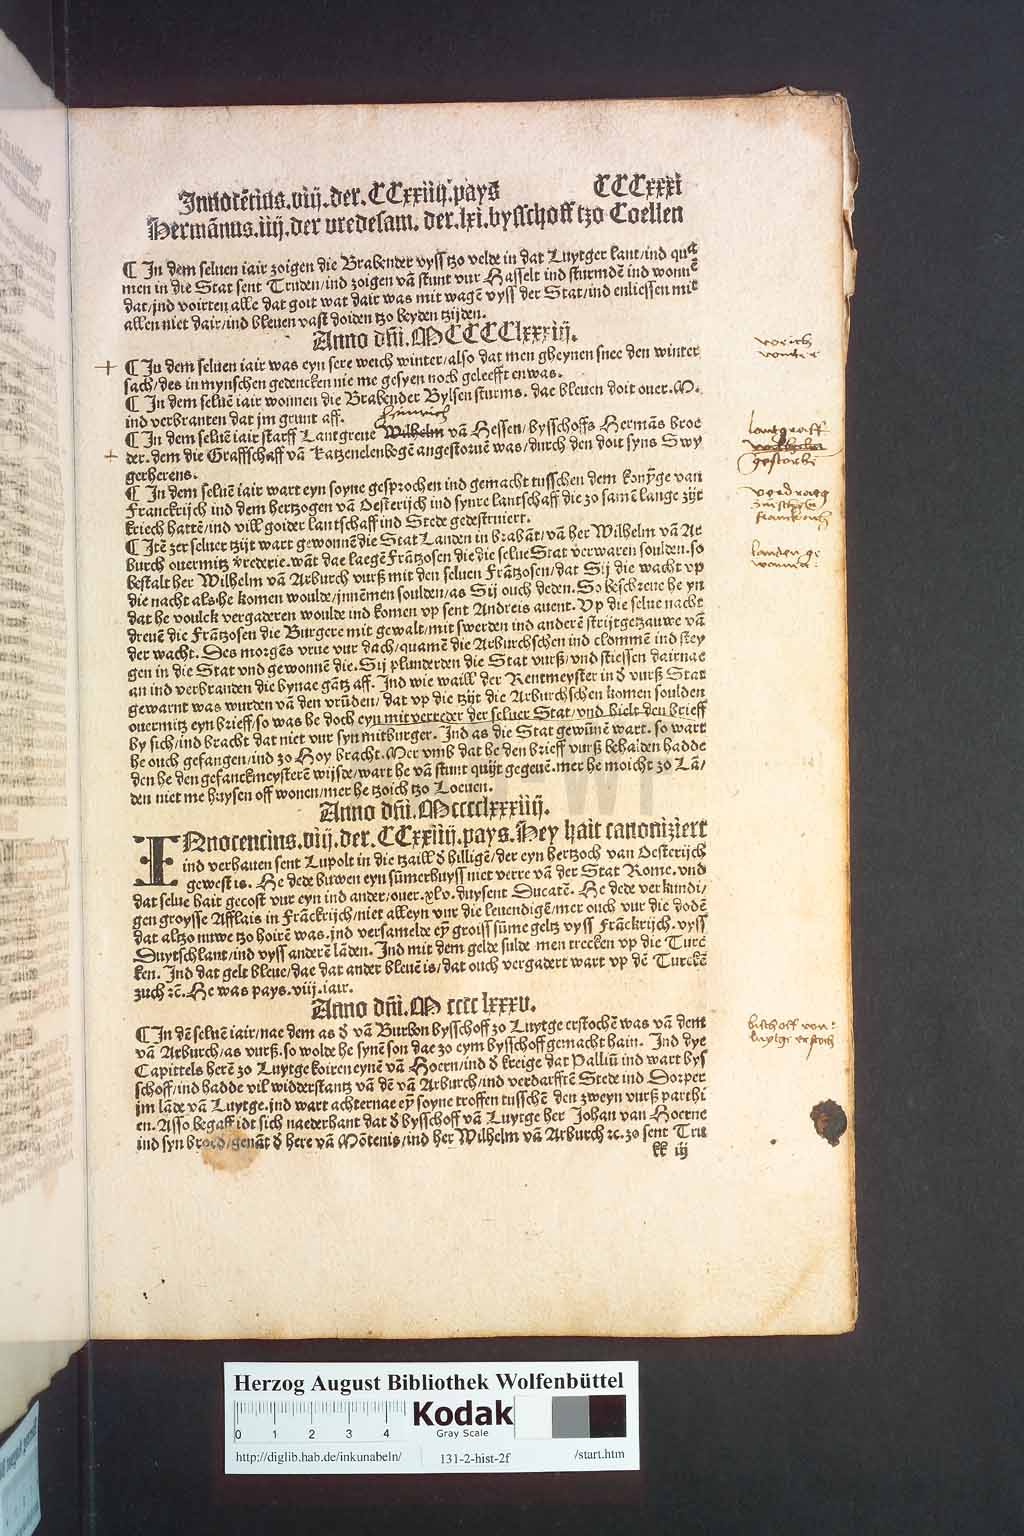 Innocẽtius.viij.der.CCxxiiij.pays CCCxxxi
Hermãnus.iiij.der vredesam.der.lxi.bysschoff tzo Coellen
¶ In dem seluen iair zoigen die Brabender vyss tzo velde in dat Luytger lant/ind quã
men in die Stat sent Truden/ind zoigen vã stunt vur Hasselt ind sturmdẽ ind wonnẽ
dat/jnd voirten alle dat goit wat dair was mit wagẽ vyss der Stat/ind enliessen mit
allen niet dair/ind bleuen vast doiden tzo beyden tzijden.
Anno dñi.MCCCClxxxiij.
¶ In dem seluen iair was eyn sere weich winter/also dat men gheynen snee den winter
sach/des in mynschen gedencken nie me gesyen noch geleefft en was.
¶ In dem seluẽ iair wonnen die Brabender Bylsen sturms. dae bleuen doit ouer.M.
ind verbranten dat jm grunt aff. Heinrich
¶ In dem seluẽ iair starff Lantgreue Wilhelm vã Hessen/bysschoffs Hermãs broe
der.dem die Graffschaff vã Katzenelenbogẽ angestoruẽ was/durch den doit syns Swy
gerherens.
¶ In dem seluẽ iair wart eyn soyne gesprochen ind gemacht tusschen dem konyge van
Franckrijch ind dem hertzogen vã Oesterijch ind synre lantschaff die zo samẽ lange zijt
kriech hattẽ/ind vill goider lantschaff ind Stede gedestruiert.
¶ Itẽ zer seluer tzijt wart gewonnẽ die Stat Landen in brabãt/vã her Wilhelm vã Ar
burch ouermitz vrederie.wãt dae laegẽ Frãtzosen die die selue Stat verwaren soulden.so
bestalt her Wilhelm vã Arburch vurß mit den seluen Frãtzosen/dat Sij die wacht vp
die nacht als he komen woulde/jnnemen soulden/as Sij ouch deden. So beschreue he yn
dat he voulck vergaderen woulde ind komen vp sent Andreis auent. Vp die selue nacht
dreuẽ die Frãtzosen die Burgere mit gewalt/mit swerden ind anderẽ strijtgetzauwe vã
der wacht. Des morgẽs vrue vur dach/quamẽ die Arburchschen ind clommẽ ind stey
gen in die Stat vnd gewonnẽ die.Sij plunderden die Stat vurß/vnd stiessen dairnae
an ind verbranden die bynae gãtz aff. Ind wie waill der Rentmeyster in d vurß Stat
gewarnt was wurden vã den vrũden/dat vp die tzijt die Arburchschen komen soulden
ouermitz eyn brieff/so was he doch eyn mit verreder der seluer Stat/vnd hielt den brieff
by sich/ind bracht dat niet vur syn mitburger. Ind as die Stat gewũnẽ wart. so wart
he ouch gefangen/ind zo Hoy bracht.Mer vmb dat he den brieff vurß behalden hadde
den he den gefanckmeysterẽ wijsde/wart he vã stunt quijt gegeuẽ.mer he moicht zo Lã/
den niet me huysen off wonen/mer he tzoich tzo Loeuen.
Anno dñi.Mcccclxxxiiij.
INnocencius.viij.der.CCxxiiij.pays.Hey hait canoniziert
ind verhauen sent Lupolt in die tzaill d hilligẽ/der eyn hertzoch van Oesterijch
gewest is. He dede buwen eyn sũmerhuyss niet verre vã der Stat Rome.vnd
dat selue hait gecost vur eyn ind ander/ouer.xlv.duysent Ducatẽ. He dede verkundi/
gen groysse Afflais in Frãckrijch/niet alleyn vur die leuendigẽ/mer ouch vur die dodẽ
dat altzo nuwe tzo hoirẽ was.jnd versamelde eỹ groiss sũme geltz vyss Frãckrijch.vyss
Duytschlant/ind vyss anderẽ lãden. Ind mit dem gelde sulde men trecken vp die Turc
ken. Ind dat gelt bleue/dae dat ander bleuẽ is/dat ouch vergadert wart vp dẽ Turckẽ
zuch ꝛc. He was pays.viij.iair.
Anno dñi.M cccc lxxxv.
¶ In dẽ seluẽ iair/nae dem as d vã Burbon bysschoff zo Luytge erstochẽ was vã dem
vã Arburch/as vurß.so wolde he synẽ son dae zo eym bysschoff gemacht hain. Ind dye
Capittels herẽ zo Luytge koiren eynẽ vã Hoern/ind d kreige dat Palliũ ind wart bys
schoff/ind hadde vil widderstantz vã dẽ vã Arburch/ind verdarfftẽ Stede ind Dorper
jm lãde vã Luytge.ind wart achternae eỹ soyne troffen tusschẽ den zweyn vurß parthi
en. Asso begaff idt sich naederhant dat d bysschoff vã Luytge her Johan van Hoerne
ind syn broed/genãt d here vã Mõtenis/ind her Wilhelm vã Arburch ꝛc.zo sent Tru
kk iij
weich
winter
lantgraff
gestorben
verdrag
zwischen
franckrich
landen ge
wonnen
bischoff von
luytge erstoch
Herzog August Bibliothek Wolfenbüttel
0 1 2 3 4
Kodak
Gray Scale
http://diglib.hab.de/inkunabeln/ 131-2-hist-2f /start.htm